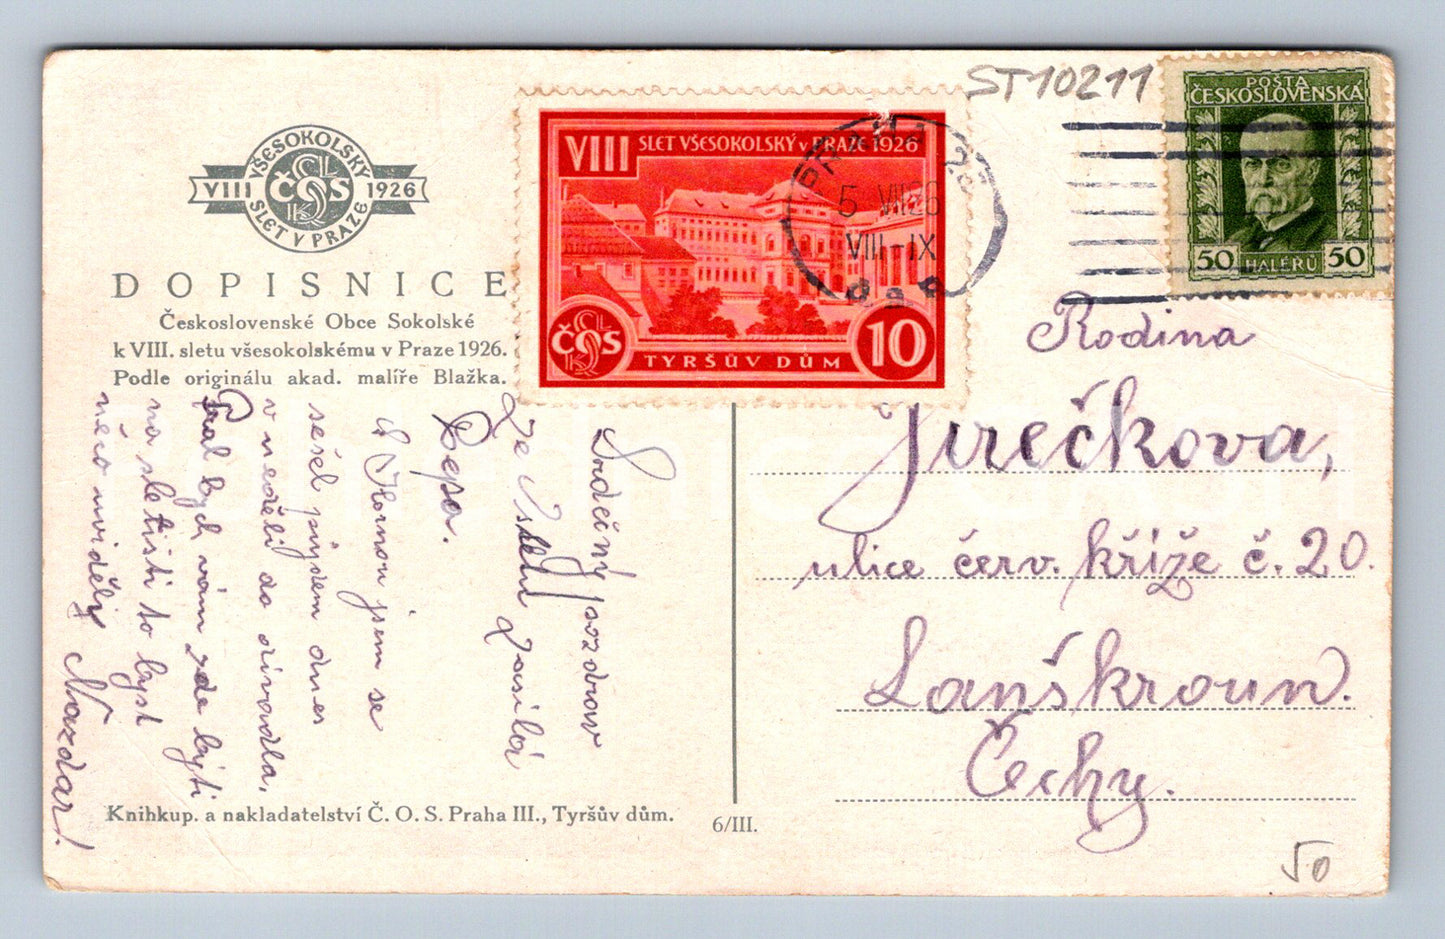 ST10211
POŠTA
ČESKOSLOVENSKÁ
50 HALÉRŮ 50
VIII SLET VŠESOKOLSKÝ V PRAZE 1926
ČOS
TYRŠŮV DŮM
10
PRAHA 25
5 VII 26
VIII-IX
VŠESOKOLSKÝ
VIII ČOS 1926
SLET V PRAZE
DOPISNICE
Československé Obce Sokolské
k VIII. sletu všesokolskému v Praze 1926.
Podle originálu akad. malíře Blažka.
Srdečný pozdrav
ze sletu zasílá
Pepa.
S Hornou jsem se
sešel přijdem dnes
v neděli do divadla,
Přál bych vám zde býti
na sletišti to byst
něco uviděli
Nazdar!
Rodina
Jirečkova,
ulice červ. kříže č. 20.
Lanškroun.
Čechy.
Knihkup. a nakladatelství Č. O. S. Praha III., Tyršův dům.
6/III.
50